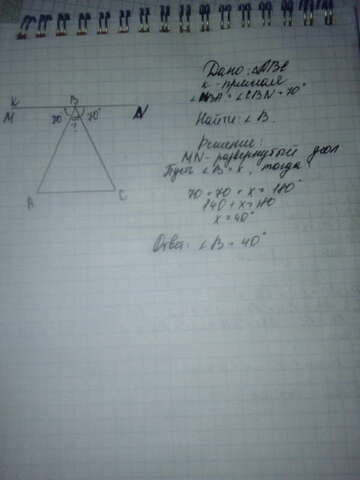 Дано: △ABC
к - прямая
∠MBA = ∠CBN = 70°
Найти: ∠B.
Решение:
MN - развернутый угол
Пусть ∠B = x, тогда
70 + 70 + x = 180°
140 + x = 180
x = 40°
Ответ: ∠B = 40°
к
B
M
N
70°
?
70°
A
C